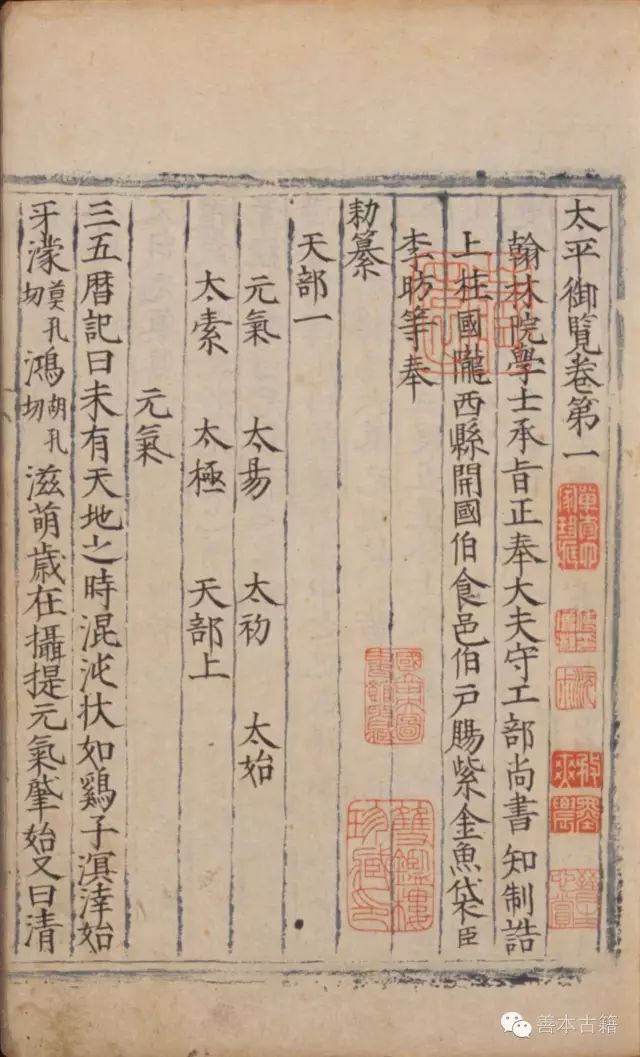 太平御覽卷第一
翰林院學士承旨正奉大夫守工部尚書知制誥
上柱國隴西縣開國伯食邑伯戸賜紫金魚袋臣
李昉等奉
勑纂
天部一
元氣 太昜 太初 太始
太素 太極 天部上
元氣
三五曆記曰未有天地之時混沌狀如鷄子溟涬始
牙濛莫孔切鴻胡孔切滋萌歲在攝提元氣肇始又曰清
珍藏印
善本古籍